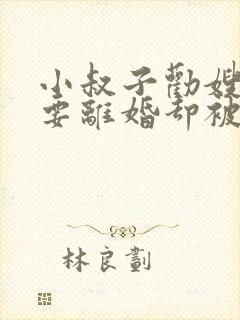 小叔子勸嫂
要離婚却被
林良劃